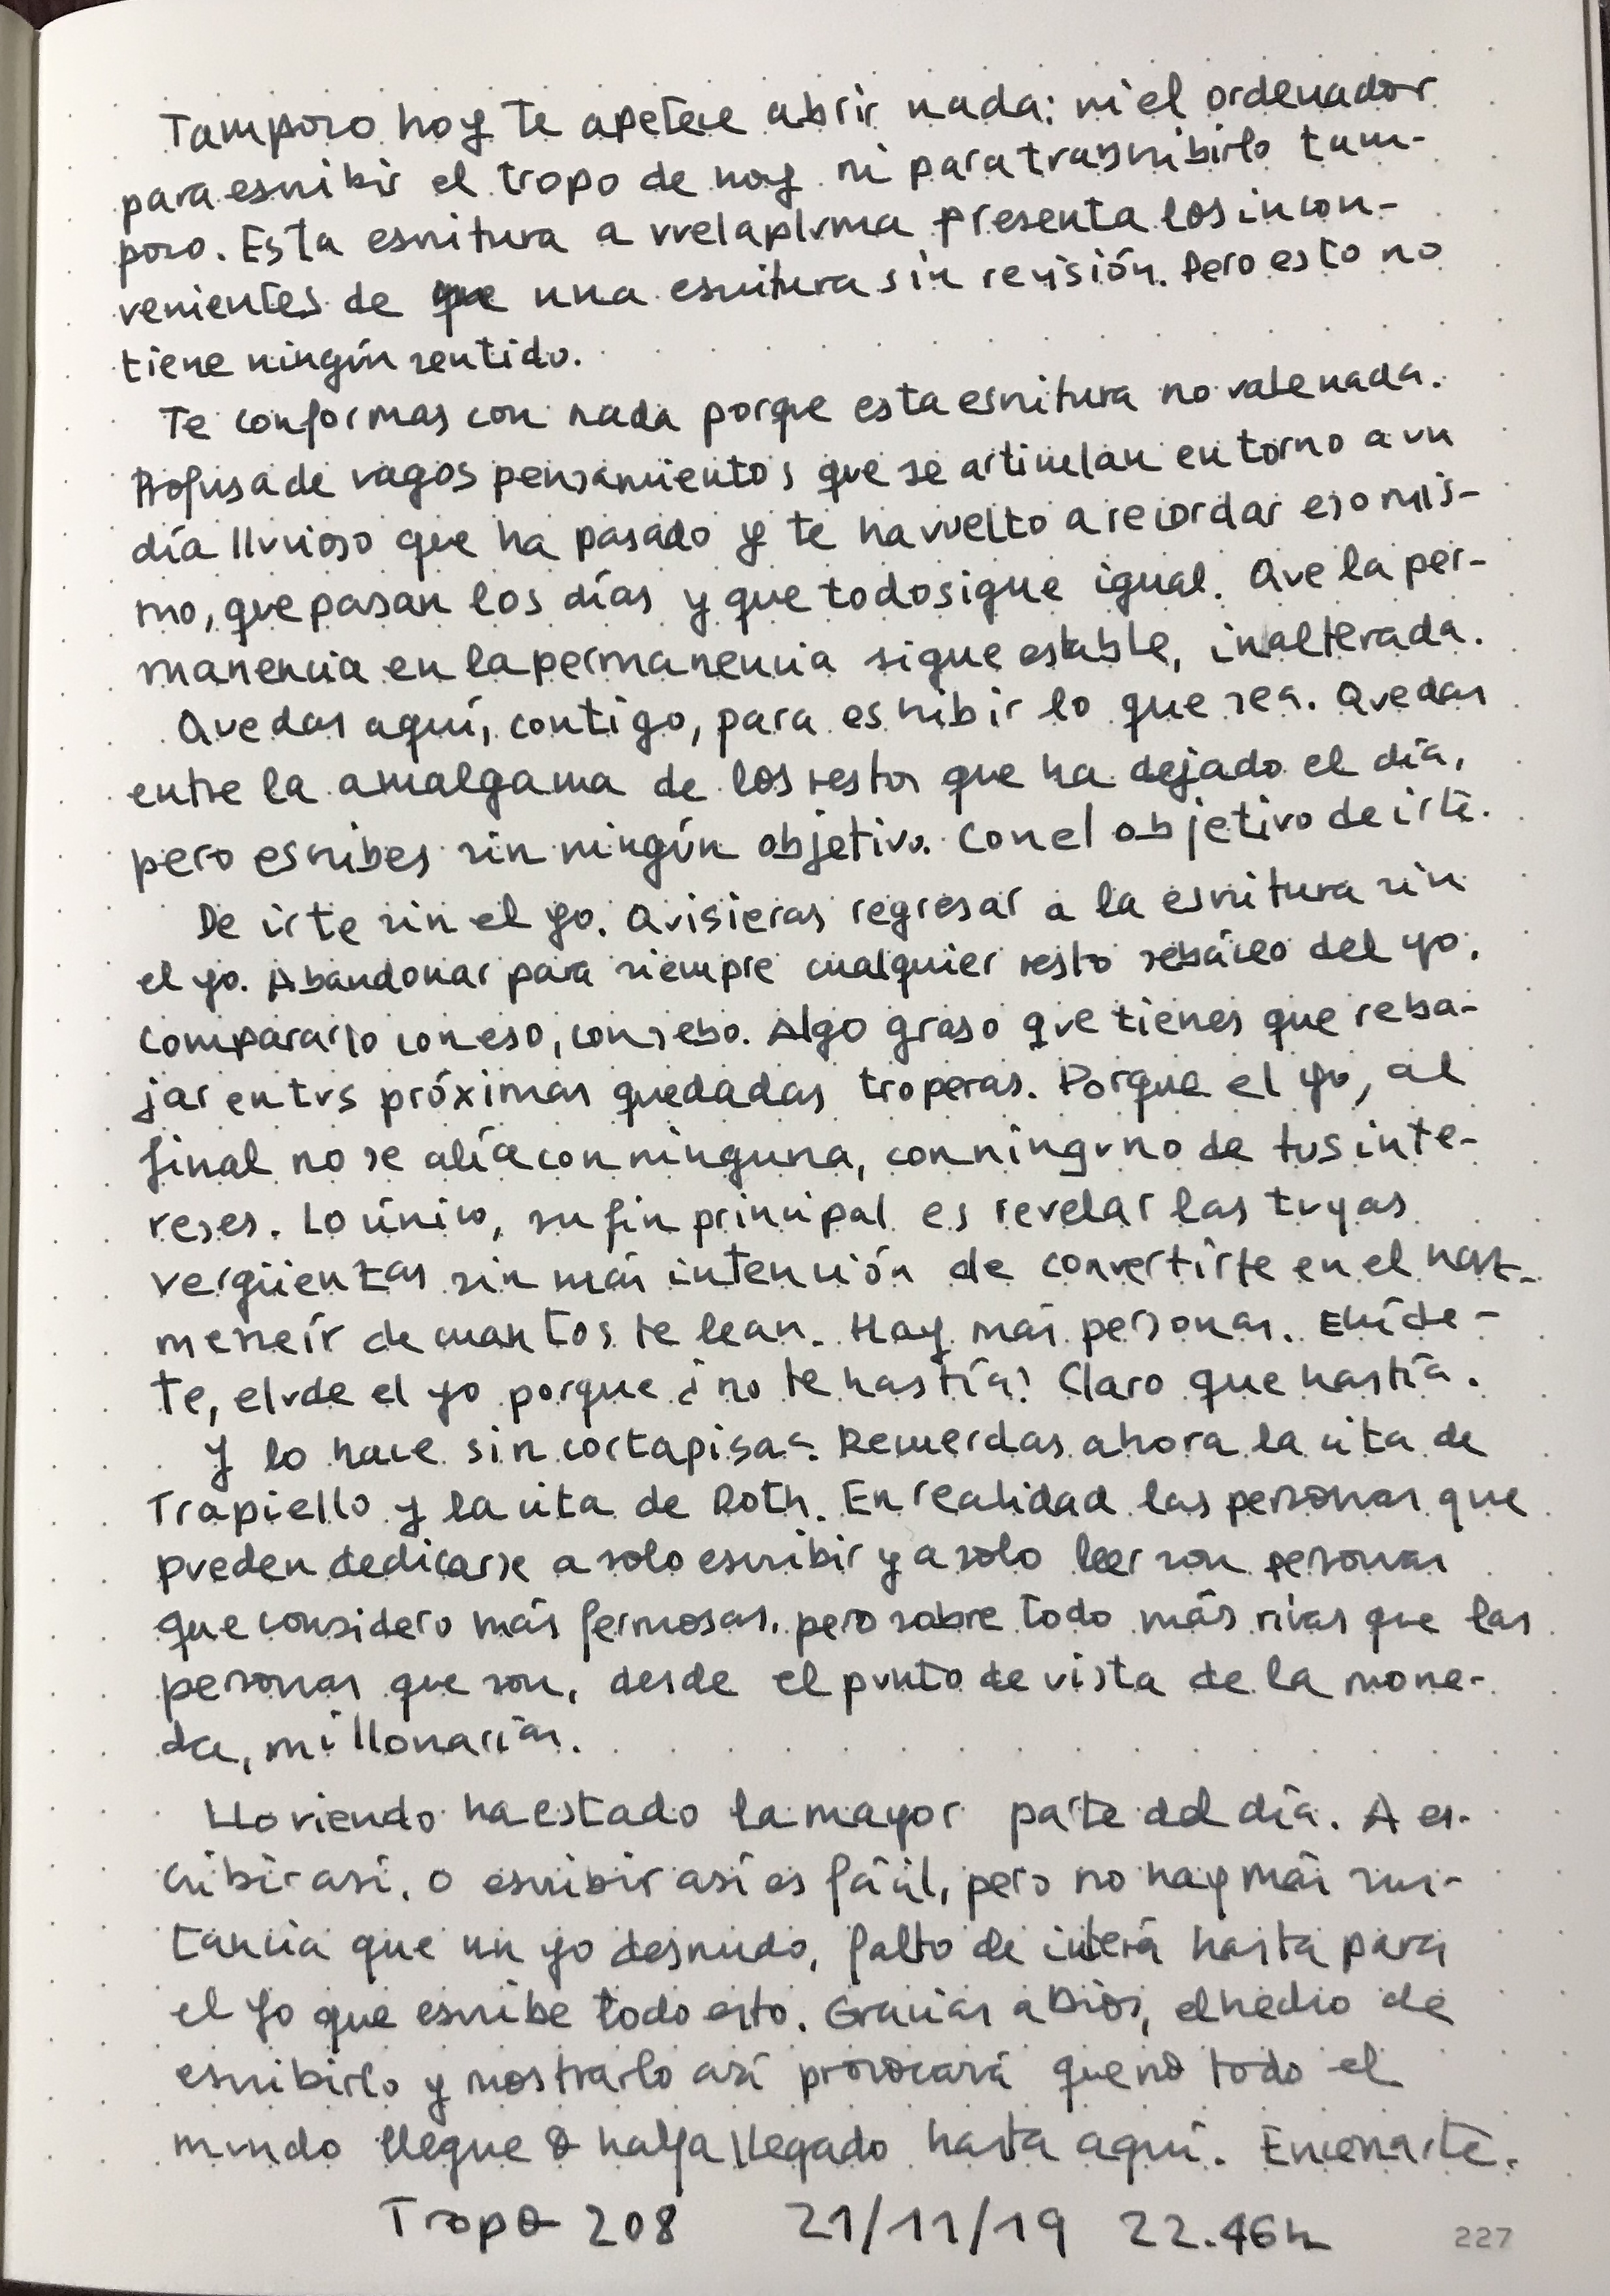 Tampoco hoy te apetece abrir nada: ni el ordenador
para escribir el tropo de hoy ni para transcribirlo tam-
poco. Esta escritura a vuelapluma presenta los incon-
venientes de que una escritura sin revisión. Pero esto no
tiene ningún sentido.
Te conformas con nada porque esta escritura no vale nada.
Profusa de vagos pensamientos que se articulan en torno a un
día lluvioso que ha pasado y te ha vuelto a recordar eso mis-
mo, que pasan los días y que todo sigue igual. Que la per-
manencia en la permanencia sigue estable, inalterada.
Quedas aquí, contigo, para escribir lo que sea. Quedas
entre la amalgama de los restos que ha dejado el día,
pero escribes sin ningún objetivo. Con el objetivo de irte.
De irte sin el yo. Quisieras regresar a la escritura sin
el yo. Abandonar para siempre cualquier resto sebáceo del yo.
Compararlo con eso, con sebo. Algo graso que tienes que reba-
jar en tus próximas quedadas troperas. Porque el yo, al
final no se alía con ninguna, con ninguno de tus inte-
reses. Lo único, su fin principal es revelar las tuyas
vergüenzas sin más intención de convertirte en el haz-
merreír de cuantos te lean. Hay más personas. Elúde-
te, elude el yo porque ¿no te hastía? Claro que hastía.
Y lo hace sin cortapisas. Recuerdas ahora la cita de
Trapiello y la cita de Roth. En realidad las personas que
pueden dedicarse a solo escribir y a solo leer son personas
que considero más fermosas, pero sobre todo más ricas que las
personas que son, desde el punto de vista de la mone-
da, millonarias.
Lloviendo ha estado la mayor parte del día. A es-
cribir así. O escribir así es fácil, pero no hay más sus-
tancia que un yo desnudo, falto de interés hasta para
el yo que escribe todo esto. Gracias a Dios, el hecho de
escribirlo y mostrarlo así provocará que no todo el
mundo llegue o haya llegado hasta aquí. Encerrarte.
Tropo 208 21/11/19 22.46h
227